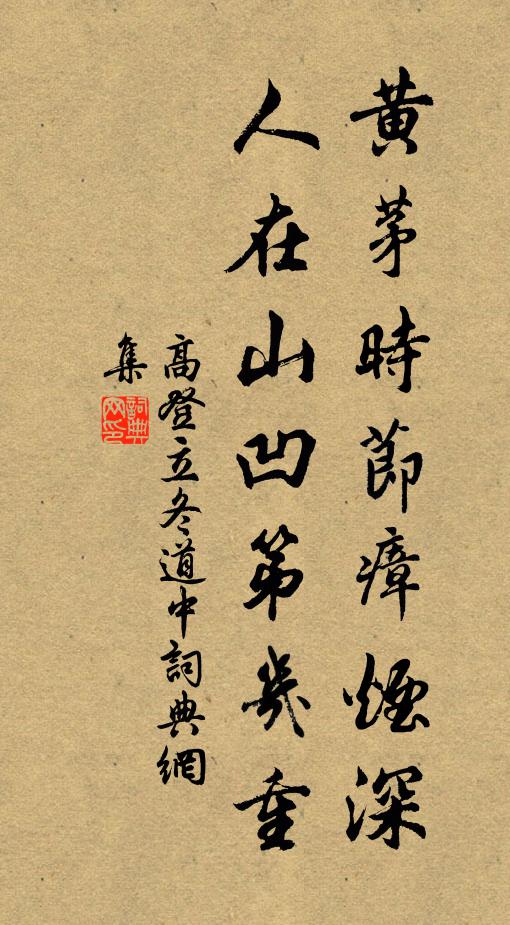 黃茅時節瘴煙深
人在山凹第幾重
高登立冬道中詞典網
集
詞典网印